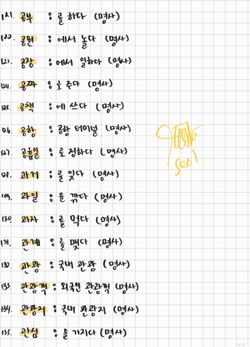 121. 공부 : 를 하다 (명사)
122. 공원 : 에서 놀다 (명사)
123. 공장 : 에서 일하다 (명사)
124. 공짜 : 로 주다 (명사)
125. 공책 : 에 쓰다 (명사)
126. 공항 : 공항 터미널 (명사)
127. 공휴일 : 로 정하다 (명사)
128. 과거 : 를 잊다 (명사)
129. 과일 : 을 깎다 (명사)
130. 과자 : 를 먹다 (명사)
131. 관계 : 를 맺다 (명사)
132. 관광 : 국내 관광 (명사)
133. 관광객 : 외국인 관광객 (명사)
134. 관광지 : 국내 관광지 (명사)
135. 관심 : 을 가지다 (명사)